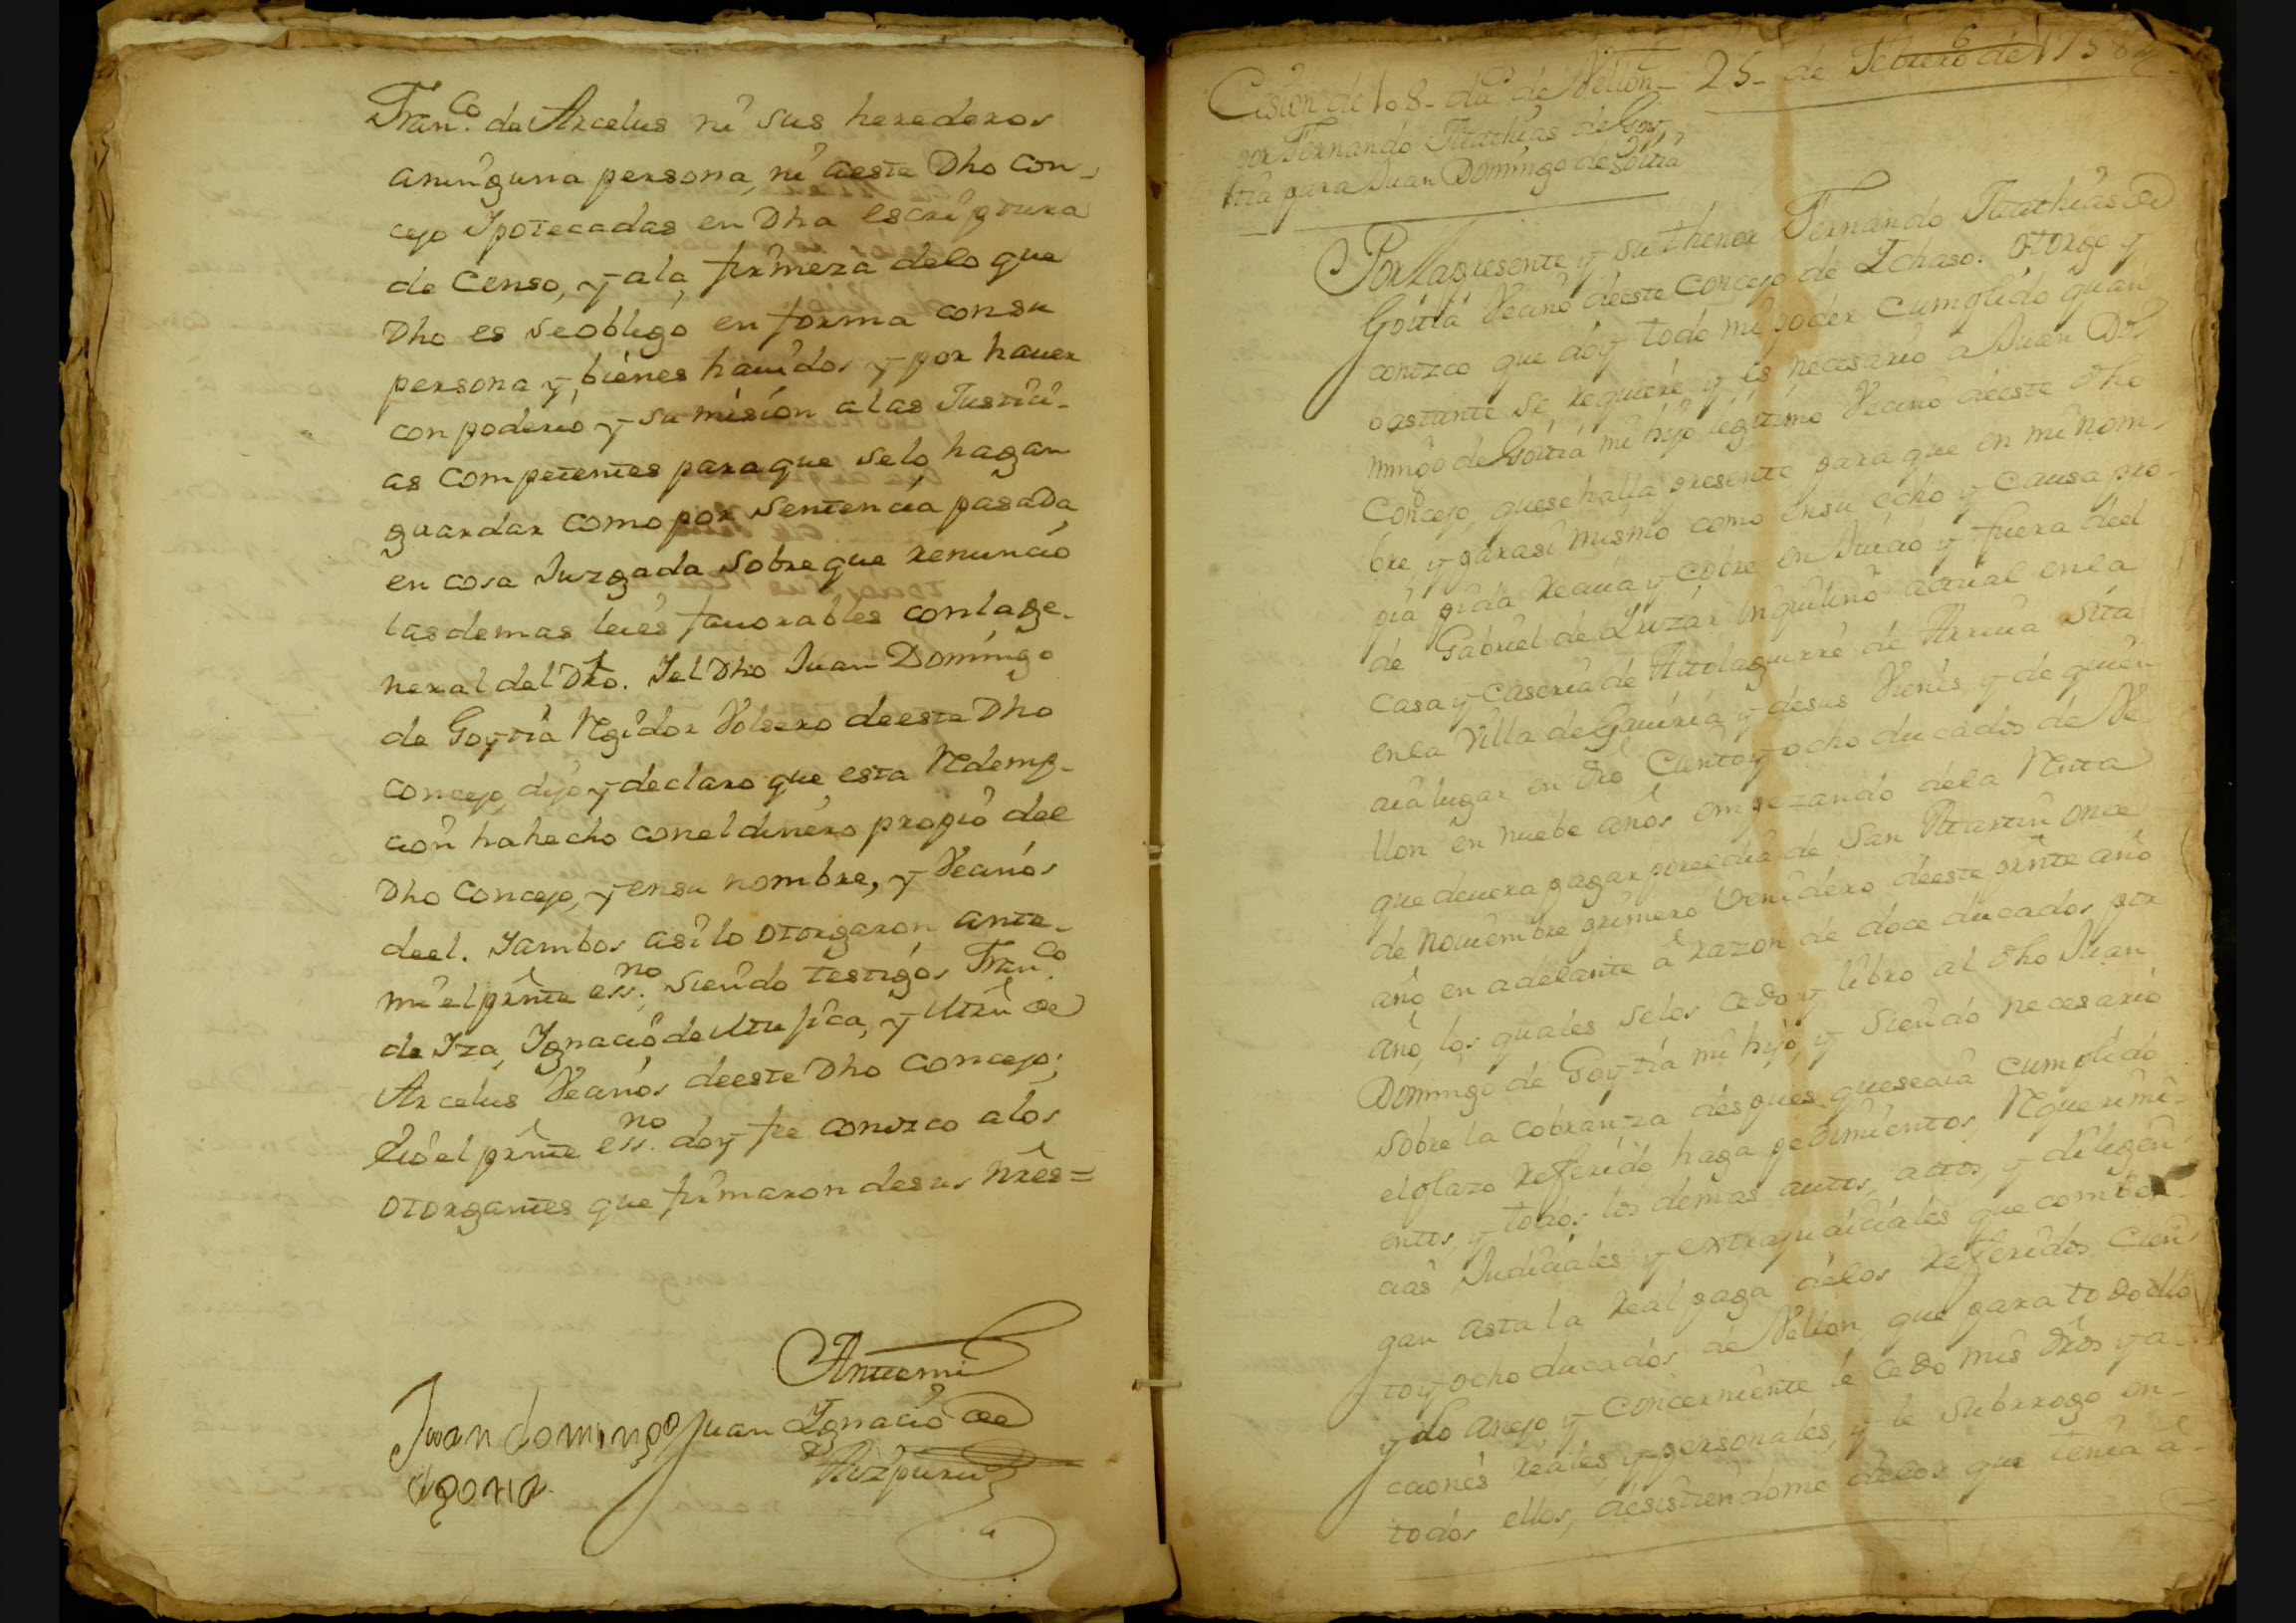 Fran.co de Arcelus ni sus herederos
aninguna persona, ni aeste Dho con-
cejo Ipotecadas en Dha escriptura
de Censo, y ala firmeza delo que
Dho es se obligó en forma con su
persona y bienes hauidos y por hauer
con poderio y sumision alas Justici-
as competentes paraque selo hagan
guardar como por sentencia pasada
en cosa Juzgada sobreque renunció
las demas leies fauorables conlage-
neral del Dro. Iel Dho Juan Domingo
de Goytia Regidor Volsero deeste Dho
concejo, dijo y declaro que esta Redemp-
cion ha hecho conel dinero propio del
Dho Concejo, y ensu nombre, y Vecinos
deel. Iambos asi lo otorgaron ante-
mi el prnte ess.no siendo testigos Fran.co
de Iza, Ignacio de Mufica, y Mrn de
Arcelus Vecinos deeste Dho Concejo;
Eió el prnte ess.no doy fee conozco alos
otorgantes que firmaron desus nres=
Antemi
Juan domingo Juan Ignacio de
degoitia Aizpuru
Cesion de 108- du.s de Vellon- 25- de Febrero de 1758
por Fernando Mathias de Goy-
tia para Juan Domingo de Goitia
Por la presente y su thenor Fernando Mathias de
Goitia Vecino deeste concejo de Ichaso. otorgo y
conozco que doy todo mi poder cumplido quan
bastante se requiere y es necesario a Juan Do-
mingo de Goitia mi hijo legitimo Vecino deeste dho
Concejo, quese halla presente para que en mi nom-
bre, y parasi mismo como ensu echo y causa pro-
pia pida reciua y cobre en Juicio y fuera deel
de Gabriel de Inzar Inquilino actual enla
casa y caseria de Atolaguirre de Arriua sita
enla Villa de Gauiria, y desus Vienes y de quien
acia lugar en dro Ciento y ocho ducados de Ve-
llon en nuebe años empezando dela Renta
que deuera pagar porel dia de San Martin once
de Nouiembre primero venidero deeste prnte año
año en adelante á razon de doce ducados por
año, los quales selos cedo y libro al dho Juan
Domingo de Goytia mi hijo, y siendo necesario
sobre la cobranza despues queseaia cumplido
el plazo referido, haga pedimientos, Requerimi-
entos, y todos los demas autos, actos, y diligen-
cias Judiciales y extrajudiciales que comben-
gan asta la real paga delos referidos cien-
to y ocho ducados de Vellon, que para todo ello
y lo anejo y concerniente le cedo mis dros y a-
cciones reales y personales, y le subrrogo en-
todos ellos, desistiendome delos que tenia á-